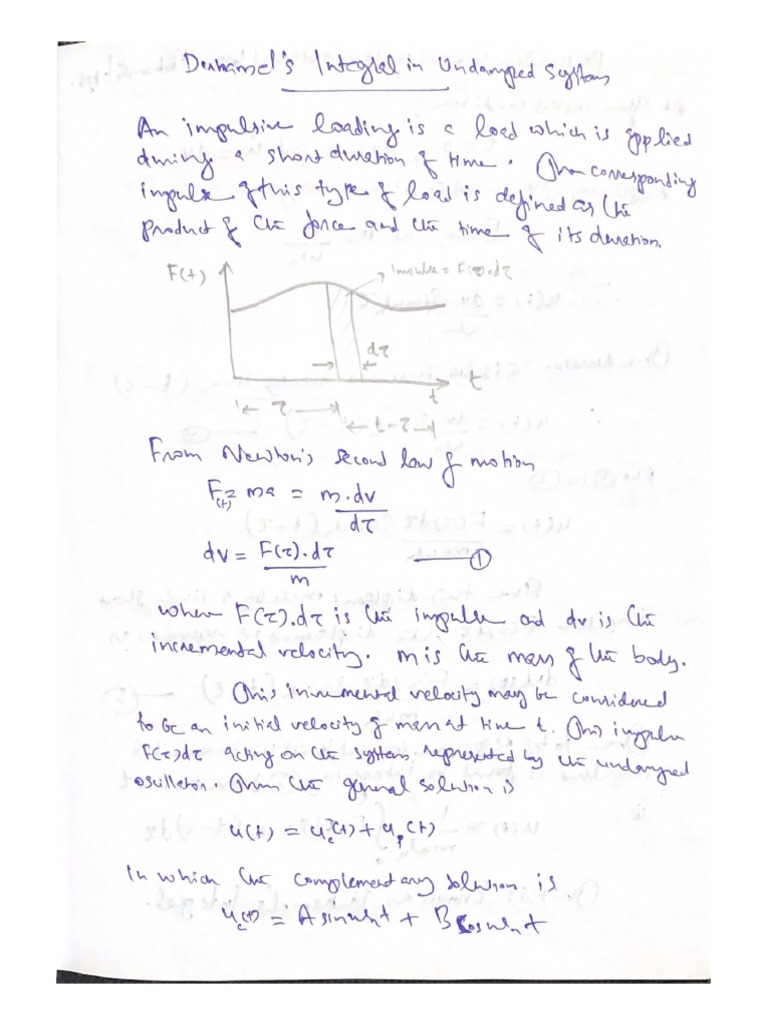 Duhamel's Integral in Undamped Systems
An impulsive loading is a load which is applied
during a short duration of time. The corresponding
impulse of this type of load is defined as the
product of the force and the time of its duration.
F(t)
Impulse = F(τ).dτ
dτ
t
t
τ
t-τ
From Newton's second law of motion
F(t) = ma = m.dv/dτ
dv = F(τ).dτ/m ——— ①
where F(τ).dτ is the impulse and dv is the
incremental velocity. m is the mass of the body.
This incremental velocity may be considered
to be an initial velocity of mass at time t. This impulse
F(τ)dτ acting on the system represented by the undamped
oscillator. Then the general solution is
u(t) = u_c(t) + u_p(t)
in which the complementary solution is
u_c(t) = A sin ω_n t + B cos ω_n t